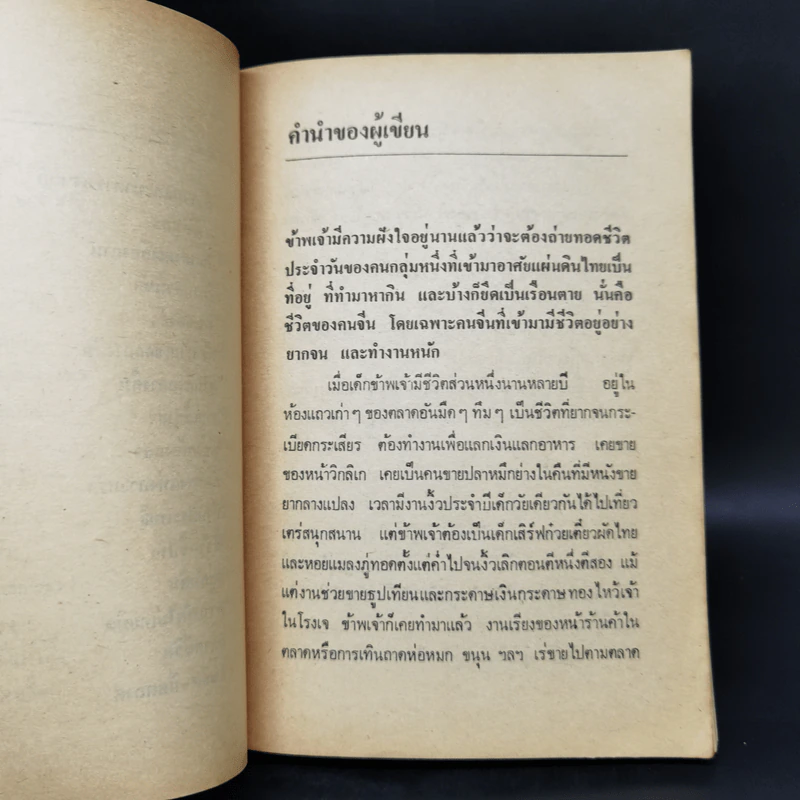 คำนำของผู้เขียน
ข้าพเจ้ามีความฝังใจอยู่นานแล้วว่าจะต้องถ่ายทอดชีวิต
ประจำวันของคนกลุ่มหนึ่งที่เข้ามาอาศัยแผ่นดินไทยเป็น
ที่อยู่ ที่ทำมาหากิน และบ้างก็ยึดเป็นเรือนตาย นั่นคือ
ชีวิตของคนจีน โดยเฉพาะคนจีนที่เข้ามามีชีวิตอยู่อย่าง
ยากจน และทำงานหนัก
เมื่อเด็กข้าพเจ้ามีชีวิตส่วนหนึ่งนานหลายปี อยู่ใน
ห้องแถวเก่าๆ ของตลาดอันมืดๆ ทึมๆ เป็นชีวิตที่ยากจนกระ-
เบียดกระเสียร ต้องทำงานเพื่อแลกเงินแลกอาหาร เคยขาย
ของหน้าวิกลิเก เคยเป็นคนขายปลาหมึกย่างในคืนที่มีหนังขาย
ยากลางแปลง เวลามีงานงิ้วประจำปีเด็กวัยเดียวกันได้ไปเที่ยว
เตร่สนุกสนาน แต่ข้าพเจ้าต้องเป็นเด็กเสิร์ฟก๋วยเตี๋ยวผัดไทย
และหอยแมลงภู่ทอดตั้งแต่ค่ำไปจนงิ้วเลิกตอนตีหนึ่งตีสอง แม้
แต่งานช่วยขายธูปเทียนและกระดาษเงินกระดาษทองไหว้เจ้า
ในโรงเจ ข้าพเจ้าก็เคยทำมาแล้ว งานเรียงของหน้าร้านค้าใน
ตลาดหรือการเทินถาดห่อหมก ขนุน ฯลฯ เร่ขายไปตามตลาด